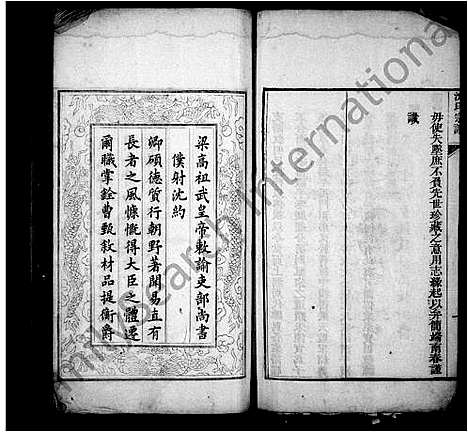 沈氏宗譜
毋使失墜庶不負先世珍藏之意用志緣起以弁簡端南春謹
識
梁高祖武皇帝敕諭吏部尚書
僕射沈約
卿碩德質行朝野著聞易直有
長者之風慷慨得大臣之體遷
爾職掌銓曹甄敘材品提衡爵
FamilySearch International